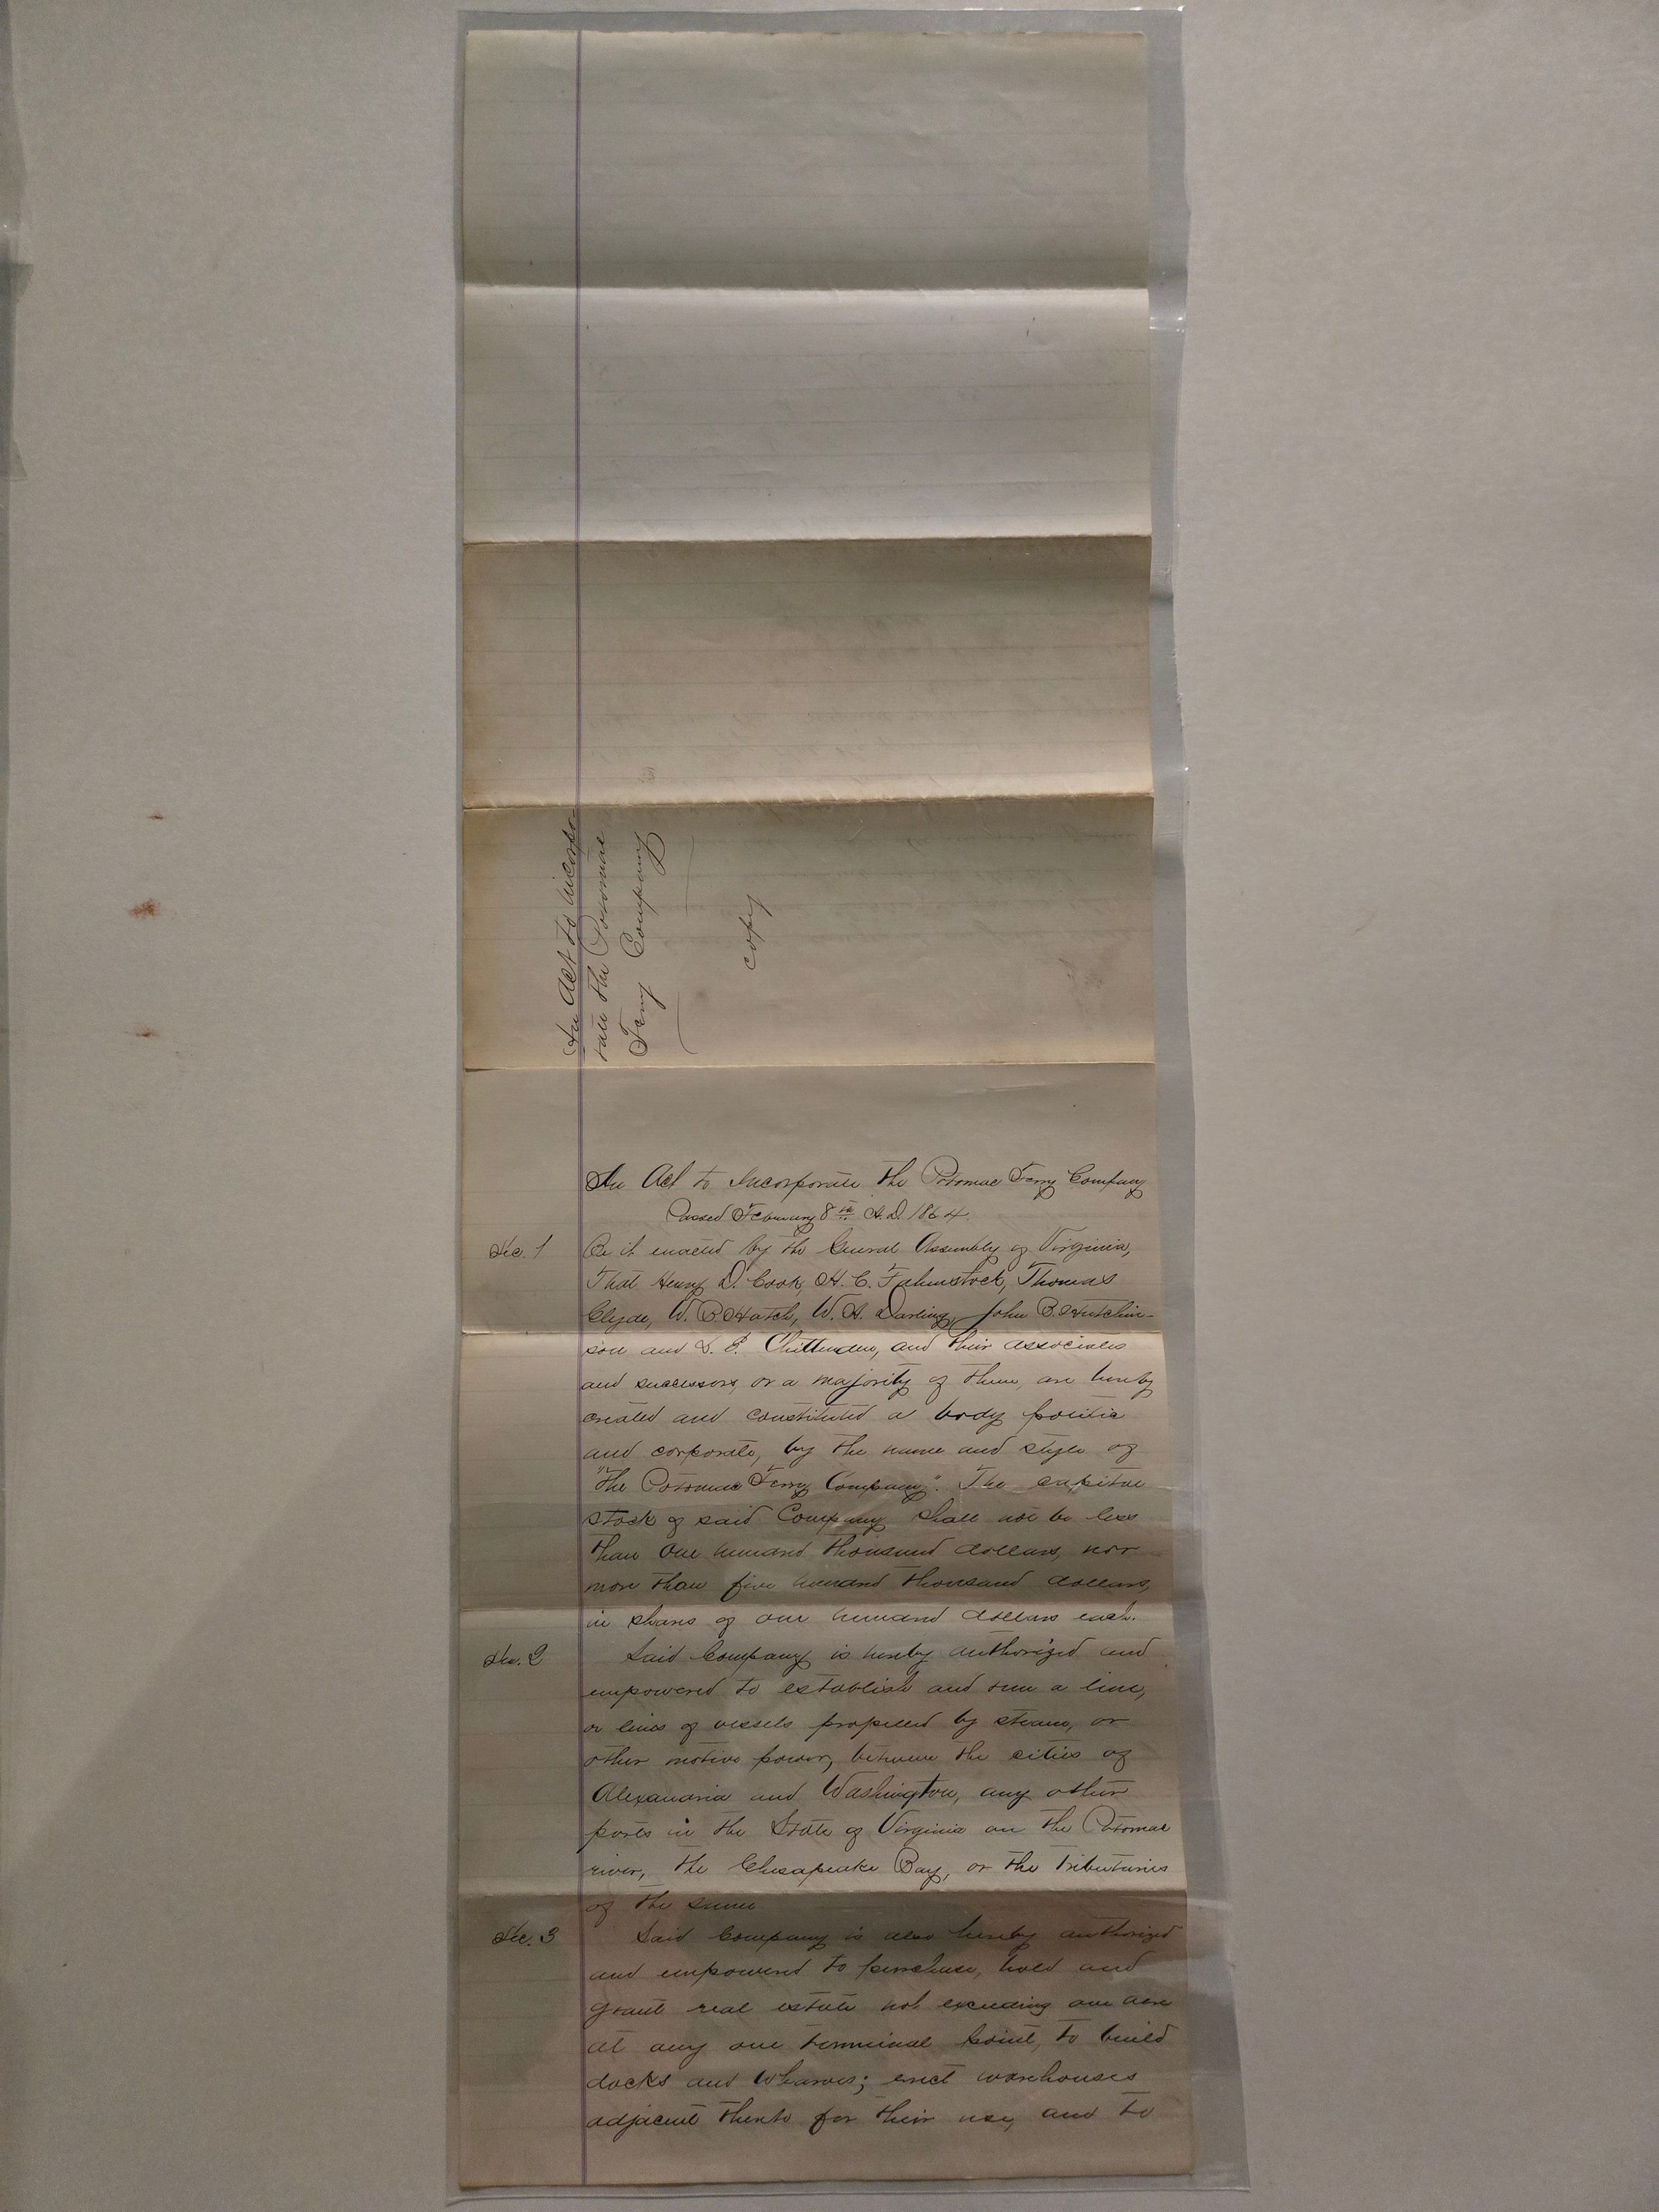 An Act to incorpo-
rate the Potomac
Ferry Company
copy
An Act to Incorporate the Potomac Ferry Company
Passed February 8th A.D. 1864.
Sec. 1 Be it enacted by the General Assembly of Virginia,
That Henry D. Cook, H. C. Fahnstock, Thomas
Clyde, W. B. Hatch, W. A. Darling, John B. Hutchin-
son and S. P. Chittenden, and their associates
and successors, or a majority of them, are hereby
created and constituted a body politic
and corporate, by the name and style of
"The Potomac Ferry Company". The capital
stock of said Company shall not be less
than one hundred thousand dollars, nor
more than five hundred thousand dollars,
in shares of one hundred dollars each.
Sec. 2 Said Company is hereby authorized and
empowered to establish and run a line,
or lines of vessels propelled by steam, or
other motive power, between the cities of
Alexandria and Washington, any other
ports in the State of Virginia on the Potomac
river, the Chesapeake Bay, or the Tributaries
of the same
Sec. 3 Said Company is also hereby authorized
and empowered to purchase, hold and
grant real estate not exceeding one acre
at any one terminal point, to build
docks and wharves; erect warehouses
adjacent thereto for their use, and to